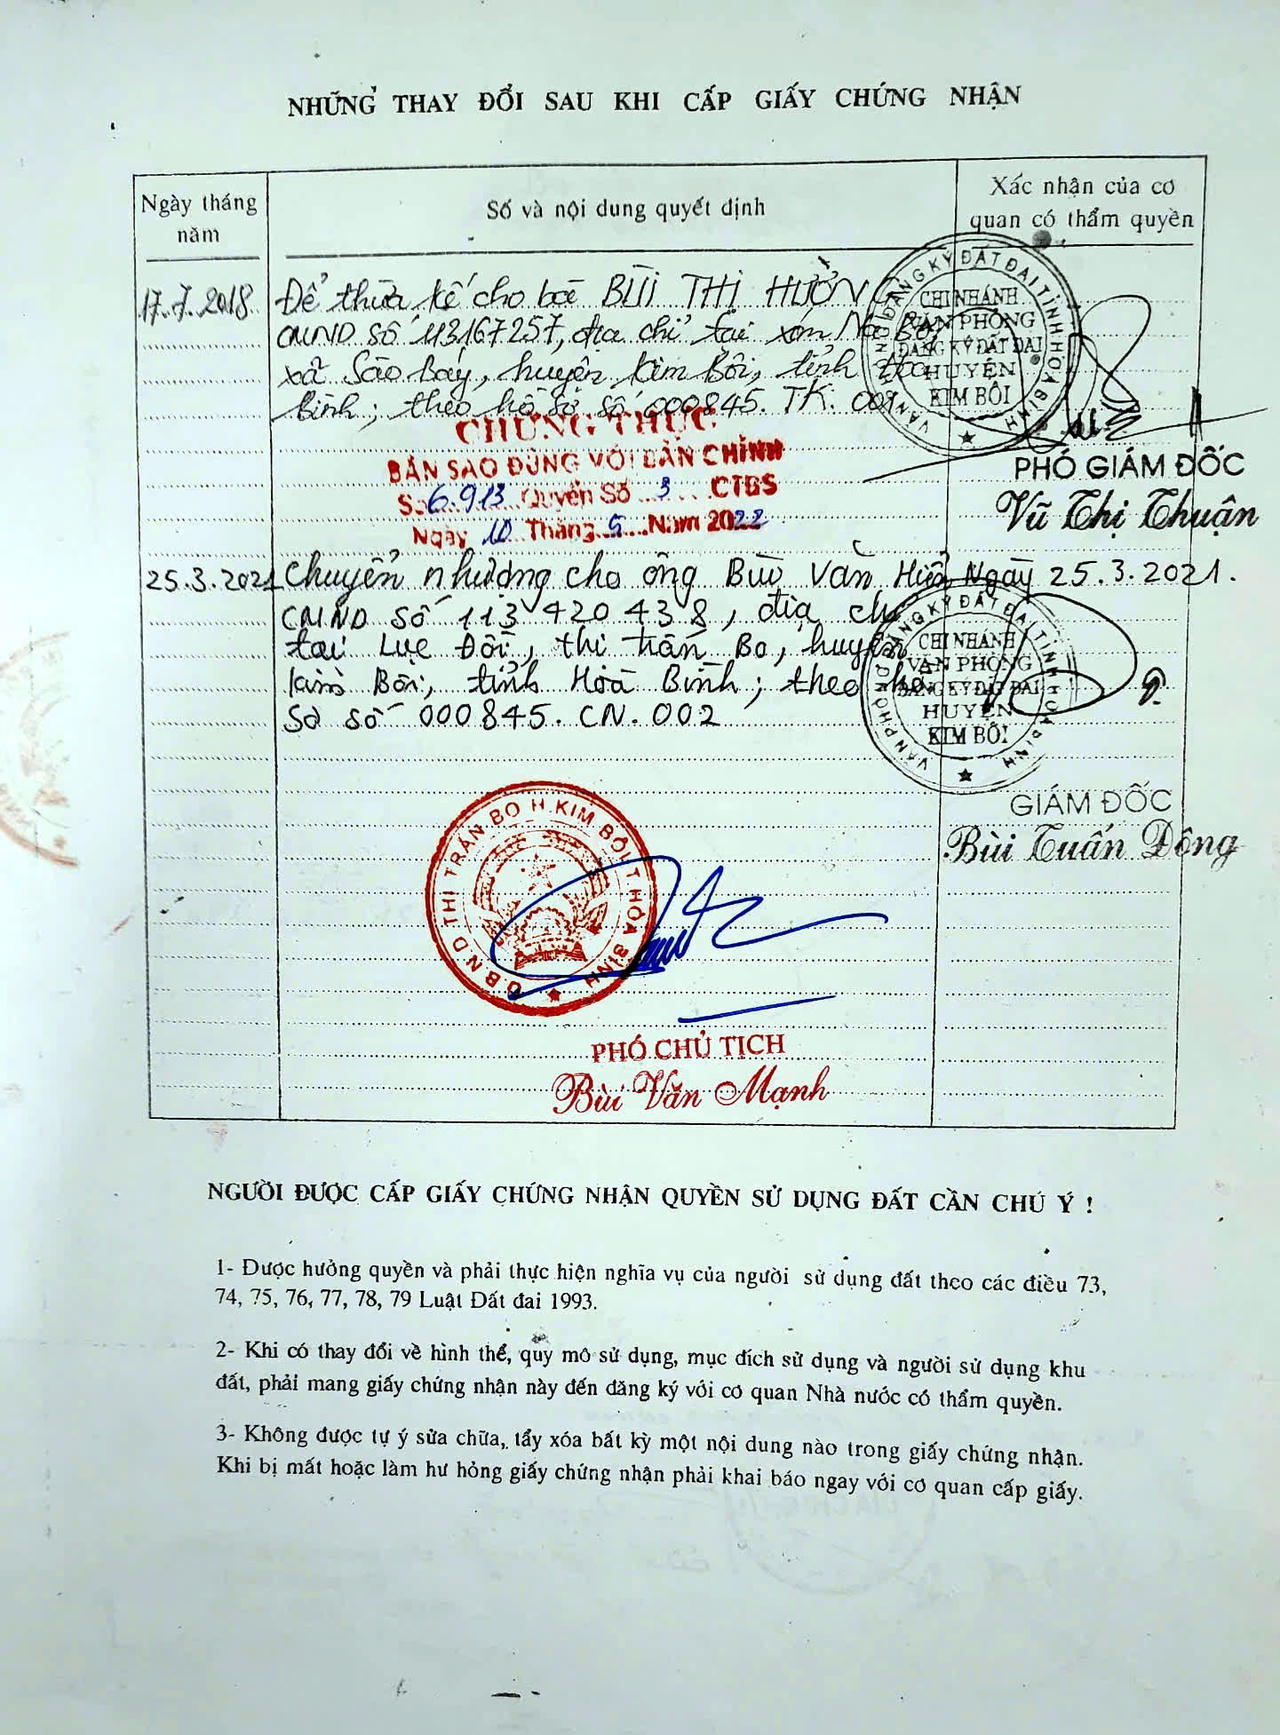 NHỮNG THAY ĐỔI SAU KHI CẤP GIẤY CHỨNG NHẬN
Ngày tháng năm
Số và nội dung quyết định
Xác nhận của cơ quan có thẩm quyền
17.7.2018
Để thừa kế cho bà BÙI THỊ HƯỜNG
CMND số 113167257, địa chỉ tại xóm
xã Sào Báy, huyện Kim Bôi, tỉnh Hòa
Bình; theo hồ sơ số 000845. TK. 001
VĂN PHÒNG ĐĂNG KÝ ĐẤT ĐAI TỈNH HÒA BÌNH
CHI NHÁNH
VĂN PHÒNG
ĐĂNG KÝ ĐẤT ĐAI
HUYỆN
KIM BÔI
PHÓ GIÁM ĐỐC
Vũ Thị Thuận
CHỨNG THỰC
BẢN SAO ĐÚNG VỚI BẢN CHÍNH
Số 6.913 Quyển Số 3 CTBS
Ngày 10 Tháng 5 Năm 2022
25.3.2021
Chuyển nhượng cho ông Bùi Văn Ngày 25.3.2021.
CMND số 113420438, địa chỉ
tại Lục Đồi, thị trấn Bo, huyện
Kim Bôi, tỉnh Hoà Bình; theo hồ
Sơ số 000845. CN. 002
VĂN PHÒNG ĐĂNG KÝ ĐẤT ĐAI TỈNH HÒA BÌNH
CHI NHÁNH
VĂN PHÒNG
ĐĂNG KÝ ĐẤT ĐAI
HUYỆN
KIM BÔI
GIÁM ĐỐC
Bùi Tuấn Dông
U.B.N.D THỊ TRẤN BO H.KIM BÔI T.HÒA BÌNH
PHÓ CHỦ TỊCH
Bùi Văn Mạnh
NGƯỜI ĐƯỢC CẤP GIẤY CHỨNG NHẬN QUYỀN SỬ DỤNG ĐẤT CẦN CHÚ Ý !
1- Được hưởng quyền và phải thực hiện nghĩa vụ của người sử dụng đất theo các điều 73,
74, 75, 76, 77, 78, 79 Luật Đất đai 1993.
2- Khi có thay đổi về hình thể, quy mô sử dụng, mục đích sử dụng và người sử dụng khu
đất, phải mang giấy chứng nhận này đến đăng ký với cơ quan Nhà nước có thẩm quyền.
3- Không được tự ý sửa chữa, tẩy xóa bất kỳ một nội dung nào trong giấy chứng nhận.
Khi bị mất hoặc làm hư hỏng giấy chứng nhận phải khai báo ngay với cơ quan cấp giấy.